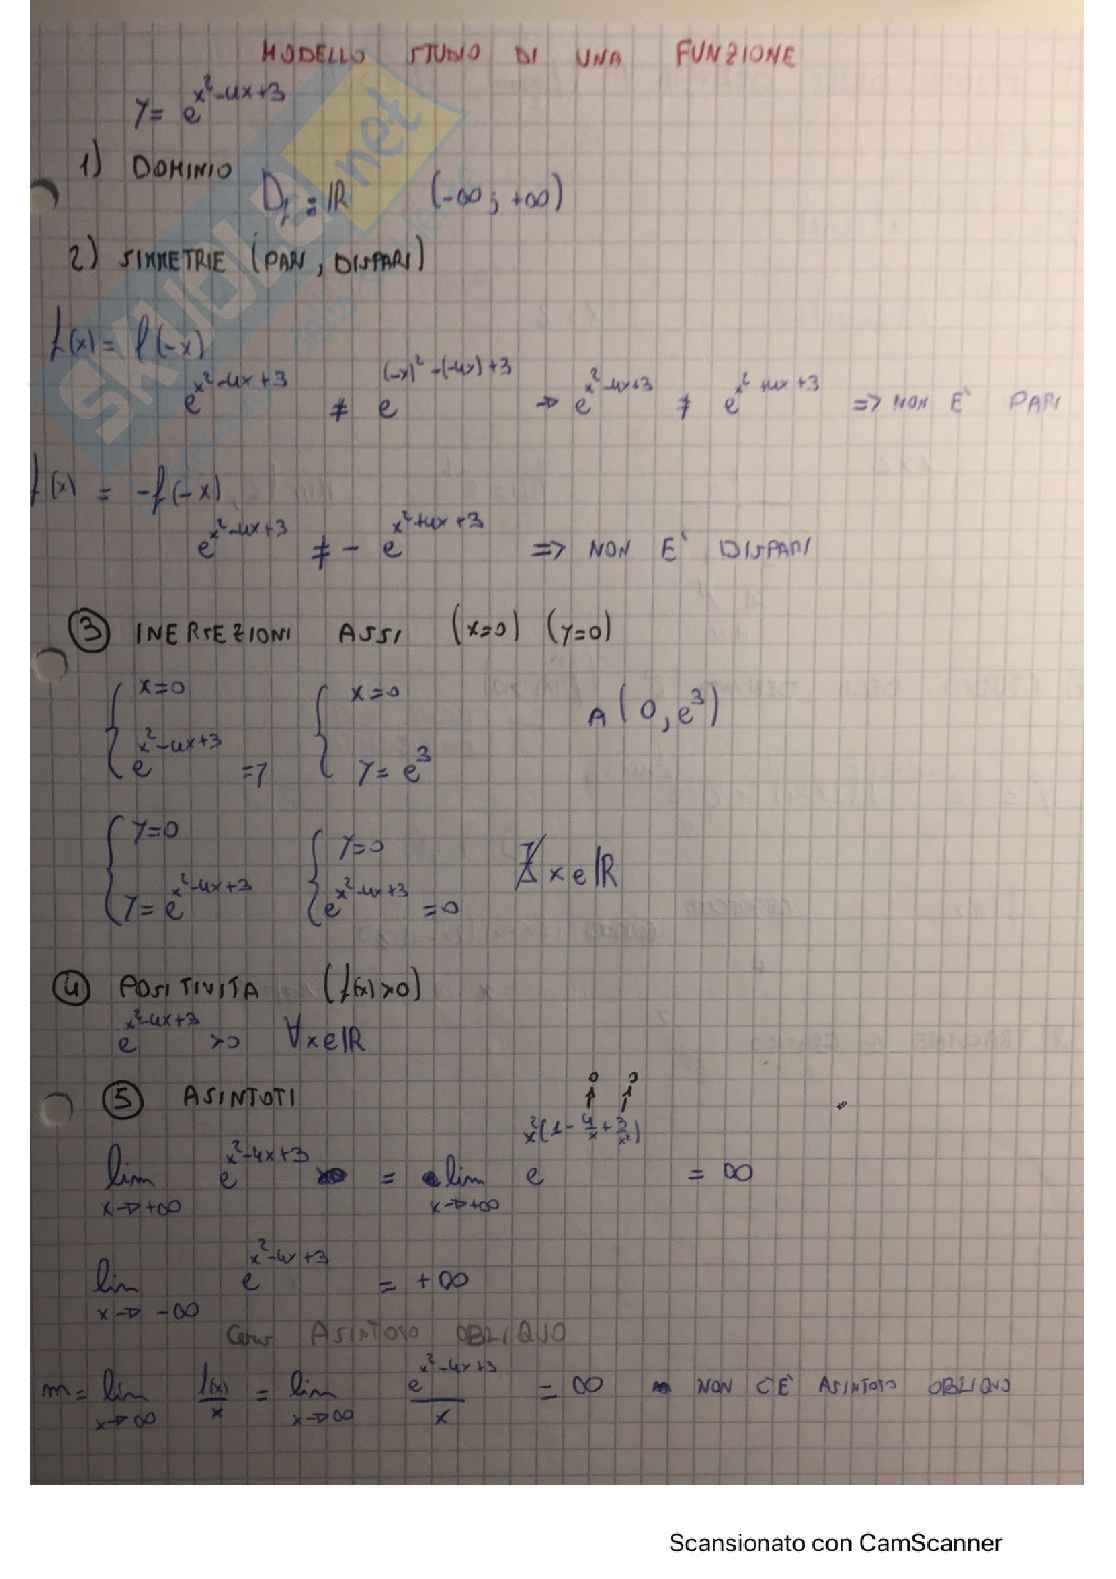 MODELLO STUDIO DI UNA FUNZIONE
y = e^{x²-4x+3}
1) DOMINIO
D_f = ℝ (-∞; +∞)
2) SIMMETRIE (PARI, DISPARI)
f(x) = f(-x)
e^{x²-4x+3} ≠ e^{(-x)²-(-4x)+3} → e^{x²-4x+3} ≠ e^{x²+4x+3} => NON E' PARI
f(x) = -f(-x)
e^{x²-4x+3} ≠ - e^{x²+4x+3} => NON E' DISPARI
3 INERSEZIONI ASSI (x=0) (y=0)
{ x=0 { x=0 A(0, e³)
e^{x²-4x+3} = y y = e³
{ y=0 { y=0 ∄ x ∈ ℝ
y = e^{x²-4x+3} e^{x²-4x+3} = 0
4 POSITIVITA (f(x)>0)
e^{x²-4x+3} >0 ∀x∈ℝ
5 ASINTOTI
0 0
↑ ↑
lim x→+∞ e^{x²-4x+3} = lim x→+∞ e^{x²(1-4/x+3/x²)} = ∞
lim x→-∞ e^{x²-4x+3} = +∞
ASINTOTO OBLIQUO
m = lim x→∞ f(x)/x = lim x→∞ e^{x²-4x+3}/x = ∞ NON C'E' ASINTOTO OBLIQUO
SKUOLA.net
Scansionato con CamScanner